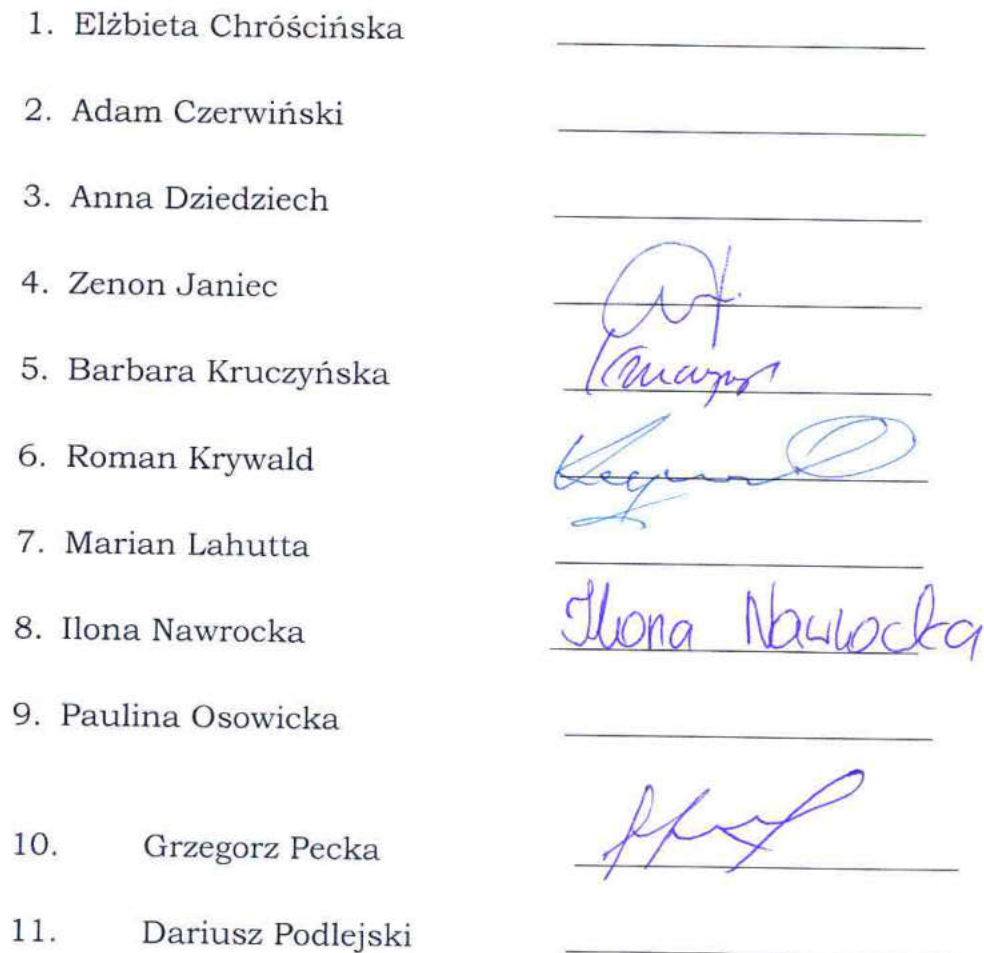 1. Elżbieta Chróścińska
2. Adam Czerwiński
3. Anna Dziedziech
4. Zenon Janiec
5. Barbara Kruczyńska
6. Roman Krywald
7. Marian Lahutta
8. Ilona Nawrocka Ilona Nawrocka
9. Paulina Osowicka
10. Grzegorz Pecka
11. Dariusz Podlejski